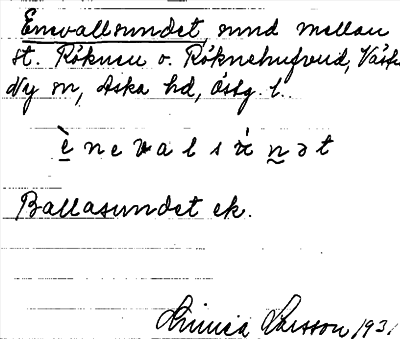 Enevallsundet, sund mellan
st. Röknen o. Röknehufvud, Västra
Ny sn, Aska hd, Östg. l.
è n e v a l s ù n ə t
Ballasundet ek.
Linnea Larsson 193